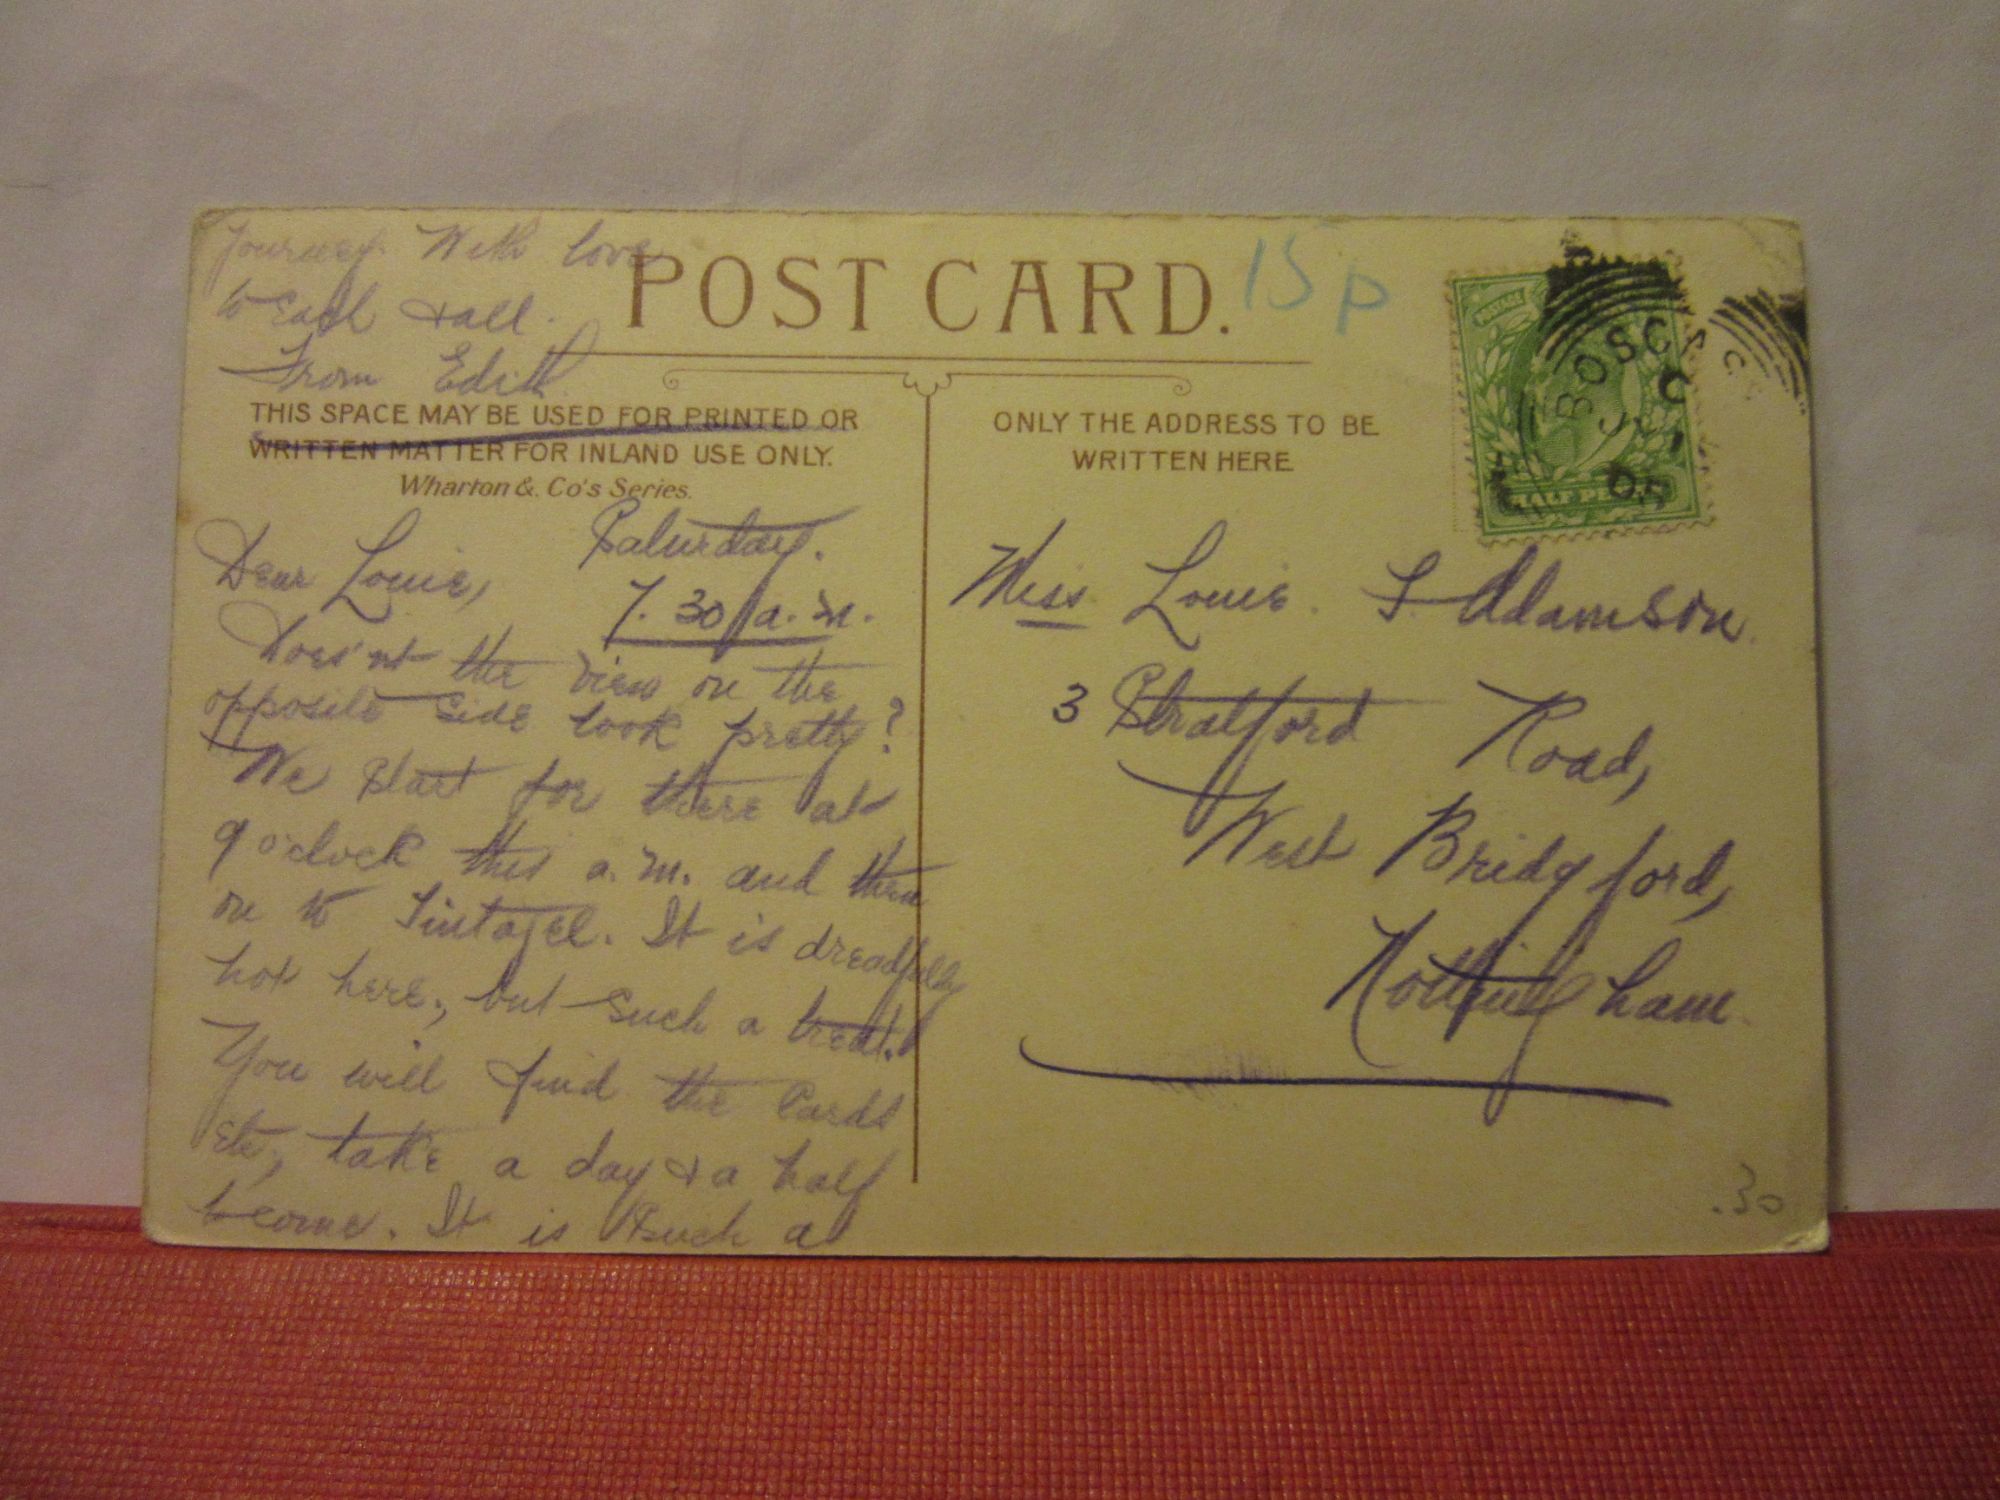 Journey. With love
to Each & all.
From Edith.
POST CARD.
15p
THIS SPACE MAY BE USED FOR PRINTED OR
WRITTEN MATTER FOR INLAND USE ONLY.
Wharton & Co's Series.
ONLY THE ADDRESS TO BE
WRITTEN HERE.
POSTAGE
HALF PENNY
BOSCAS
JU 1
05
Saturday.
7.30 a.m.
Dear Louie,
Does'nt the view on the
opposite side look pretty?
We start for there at
9 o'clock this a.m. and then
on to Tintagel. It is dreadfully
hot here, but such a treat.
You will find the Cards
etc, take a day & a half
to come. It is such a
Miss Louie. S. Adamson.
3 Stratford Road,
West Bridgford,
Nottingham.
.30